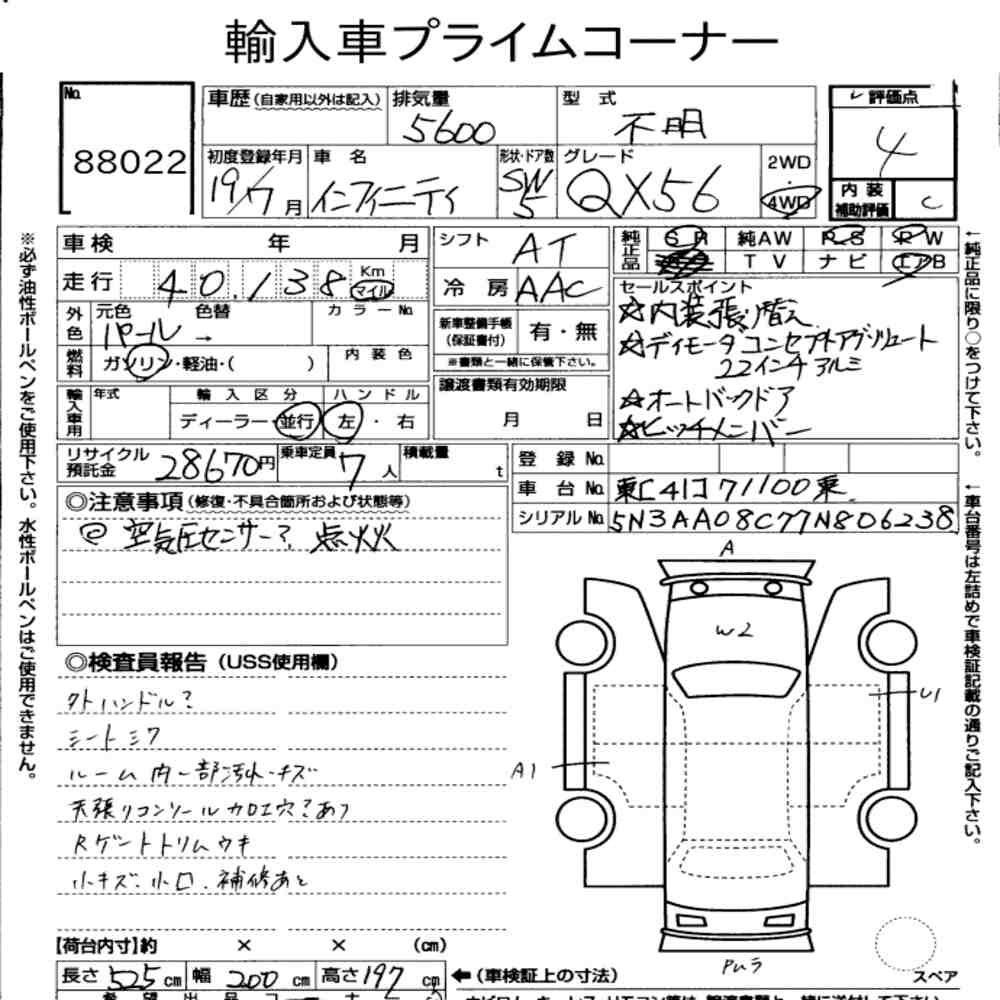 輸入車プライムコーナー
No.
88022
車歴(自家用以外は記入)
排気量
5600
型 式
不明
レ 評価点
4
初度登録年月
19/7月
車 名
インフィニティ
形状・ドア数
SW
5
グレード
QX56
2WD
・
4WD
内 装
補助評価
C
※必ず油性ボールペンをご使用下さい。水性ボールペンはご使用できません。
車検 年 月
シフト
AT
純正品
SR 純AW PS PW
TV ナビ エアB
走行 40,138 Km
マイル
冷房
AAC
セールスポイント
☆内装張り替え
☆ディモータコンセプトアブソリュート
22インチアルミ
☆オートバックドア
☆ヒッチメンバー
外色
元色 色替 カラーNo.
パール →
新車整備手帳
(保証書付)
有・無
※書類と一緒に保管下さい。
燃料
ガソリン・軽油・( )
内装色
譲渡書類有効期限
月 日
輸入車用
年式
輸入区分
ハンドル
ディーラー・並行
左・右
リサイクル
預託金
28670円
乗車定員
7人
積載量
t
登録No.
車台No. 東[41]71100東
シリアルNo. 5N3AA08C77N806238
←純正品に限り○をつけて下さい。
←車台番号は左詰めで車検証記載の通りご記入下さい。
◎注意事項(修復・不具合箇所および状態等)
◎ 空気圧センサー?点灯
◎検査員報告(USS使用欄)
外ハンドル?
シートシワ
ルーム内一部汚れ・キズ
天張りコンソール加工穴?あり
Rゲートトリムウキ
小キズ、小凹、補修あと
A
W2
U1
A1
スペア
【荷台内寸】約 × × (cm)
長さ 525 cm
幅 200 cm
高さ 197 cm
←(車検証上の寸法)